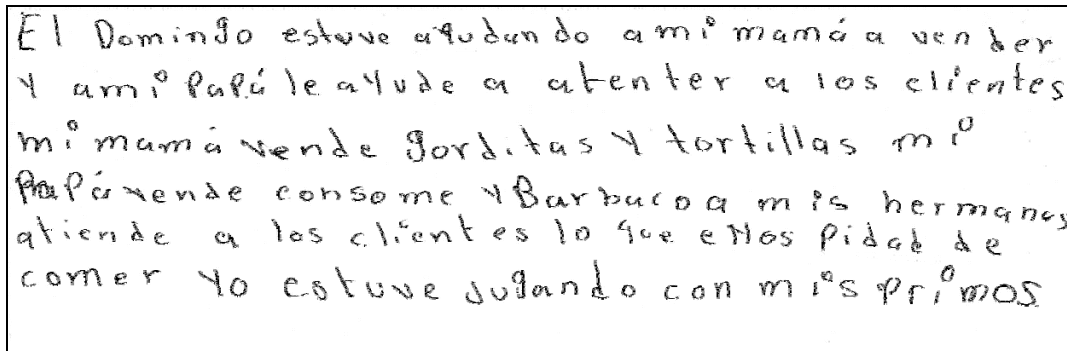 El Domingo estuve ayudando a mi mamá a vender
Y ami Papá le ayude a atenter a los clientes
mi mamá vende gorditas y tortillas mi
Papá vende consome y Barbacoa mis hermanas
atiende a los clientes lo que ellos Pidad de
comer Yo estuve jugando con mis primos